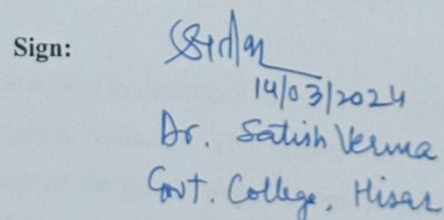 Sign:
14/03/2024
Dr. Satish Verma
Govt. College, Hisar